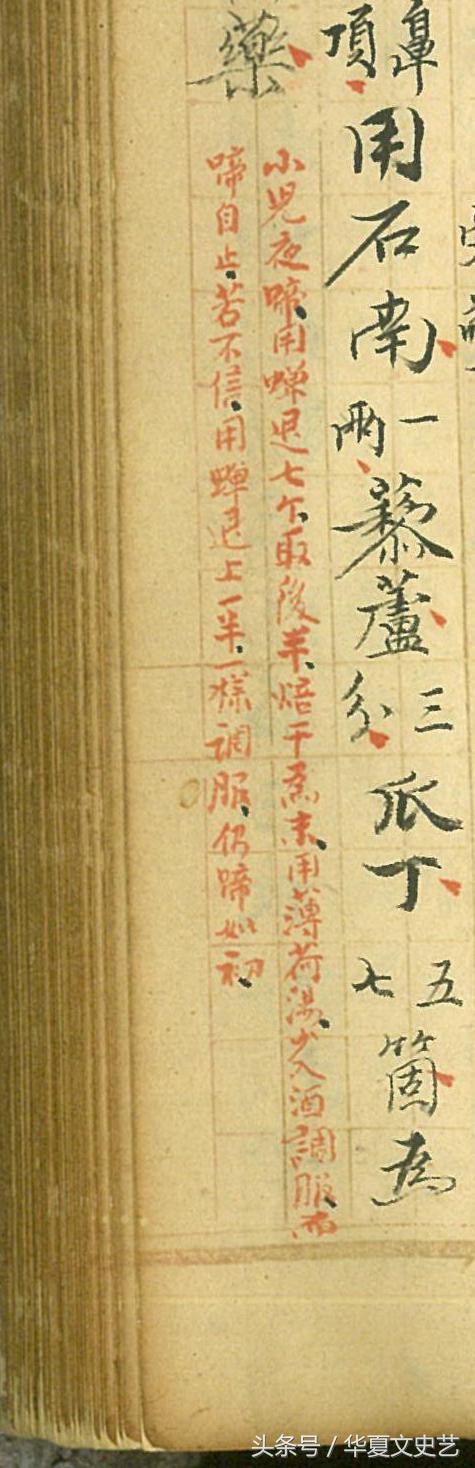 鼻項用石南一兩藜蘆三分瓜丁五七箇為
藥
小兒夜啼用蟬退七个取後半焙干為末用薄荷湯少入酒調服而
啼自止若不信用蟬退上一半一樣調服仍啼如初
头条号 / 华夏文史艺